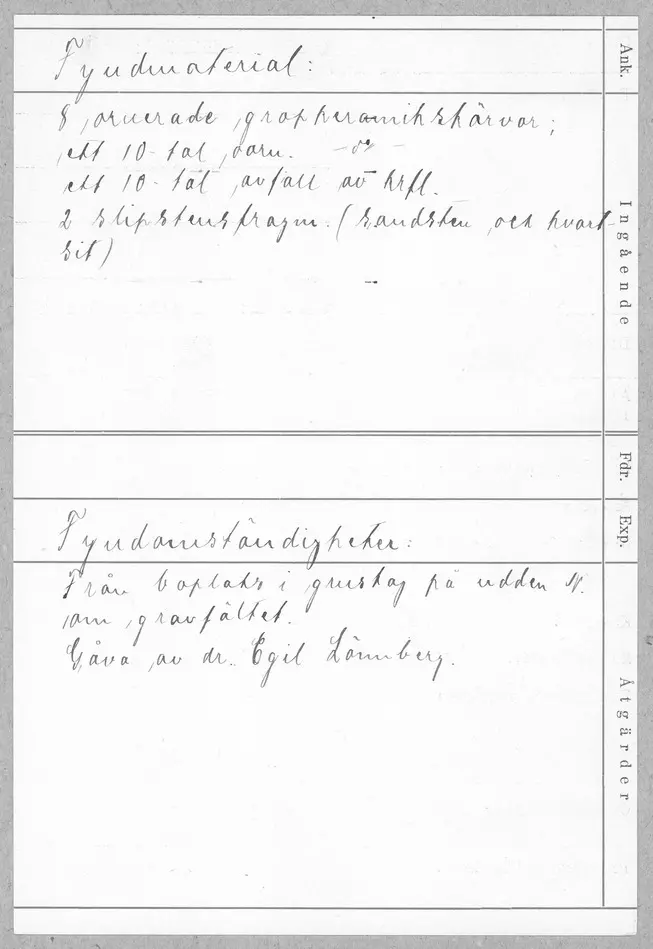 Fyndmaterial:
8 ornerade gropkeramikskärvor;
ett 10-tal oorn. -do-
ett 10-tal avfall av krfl.
2 slipstensfragm. (sandsten och kvart-
sit)
Fyndomständigheter:
Från boplats i grustag på udden N.
om gravfältet.
Gåva av dr. Egil Lönnberg.
Ank.
Ingående
Fdr.
Exp.
Åtgärder